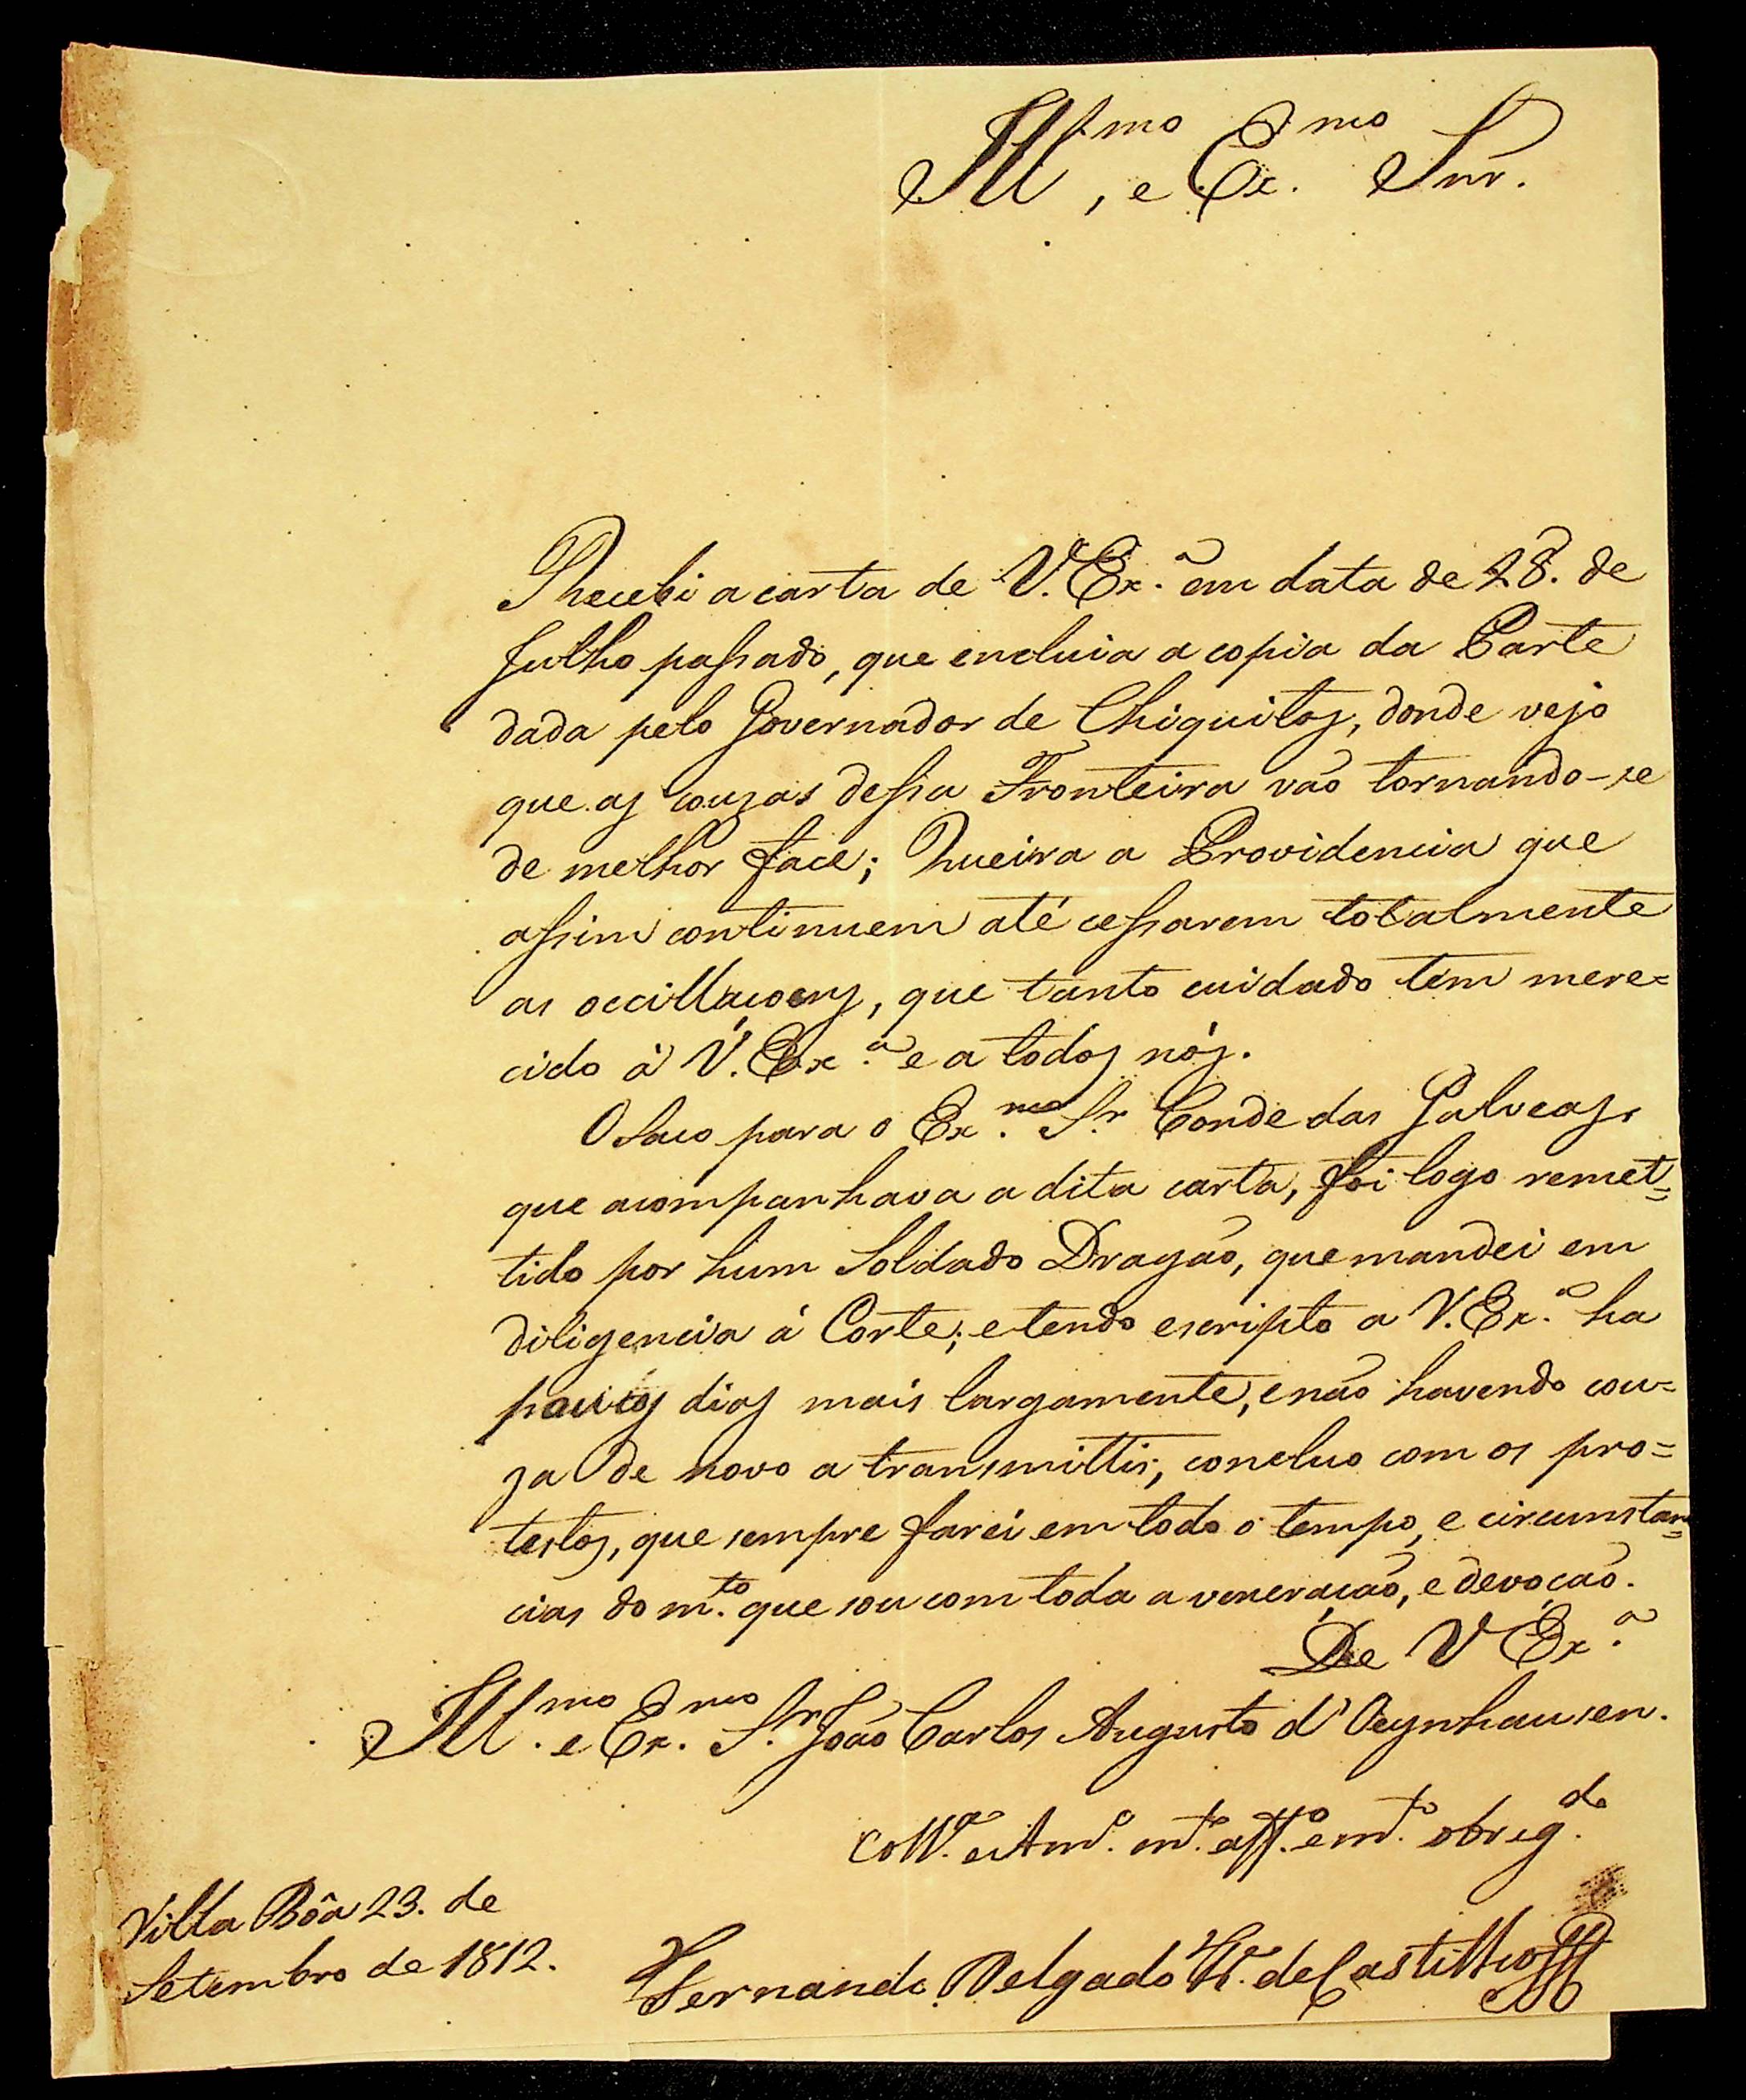 Ill.mo, e Ex.mo Snr.
Recebi a carta de V. Ex.a em data de 28. de
Julho passado, que incluia a copia da Parte
dada pelo Governador de Chiquitos, donde vejo
que as couzas dessa Fronteira vão tornando-se
de melhor face; Queira a Providencia que
assim continuem até cessarem totalmente
as occillaçoens, que tanto cuidado tem mere=
cido á V. Ex.a e a todos nós.
O Saco para o Ex.mo S.r Conde das Galveas,
que acompanhava a dita carta, foi logo remet=
tido por hum Soldado Dragão, que mandei em
diligencia á Corte; e tendo escripto a V. Ex.a ha
poucos dias mais largamente, e não havendo cou=
za de novo a transmittir, concluo com os pro=
testos, que sempre farei em todo o tempo, e circumstan=
cias do m.to que sou com toda a veneração, e devoção.
De V Ex.a
Ill.mo e Ex.mo S.r João Carlos Augusto d'Oeynhausen.
Coll.a e Am.o m.to aff.o e m.to obrig.do
Villa Bôa 23. de
Setembro de 1812.
Fernando Delgado Fr.e de Castilho